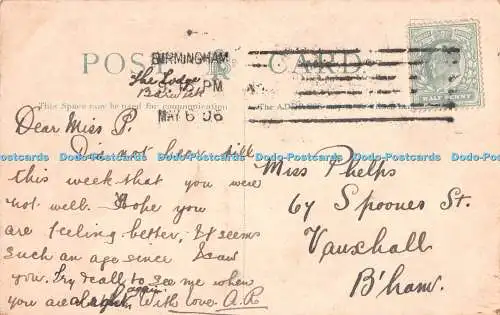 POST CARD
BIRMINGHAM
PM
MAY 6 06
HALF PENNY
The Lodge
This Space may be used for communication
The ADDRESS
Dear Miss P.
Did not hear till
this week that you were
not well. Hope you
are feeling better, it seems
such an age since I saw
you. Try & call to see me when
you are alright again. With love. A.P.
Miss Phelps
67 Spooner St.
Vauxhall
B'ham.
Dodo-Postcards Dodo-Postcards Dodo-Postcards Dodo-Postcards Dodo-Postcards Dodo-Postcards